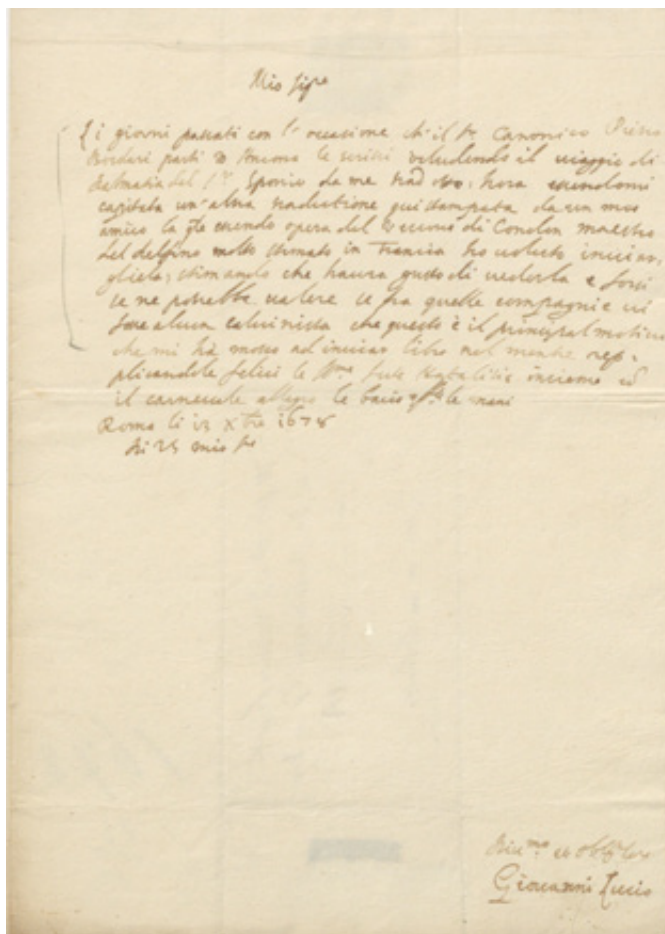 Mio Sig.re
i giorni passati con l'occasione ch'il Sr. Canonico
parti le scrissi del viaggio di
Dalmatia del Sr. Sponio da me tradotto, hora essendomi
capitata un'altra traduttione qui stampata da un mio
amico la qle essendo opera del Vescovo di Condom maestro
del delfino molto stimato in Francia ho voluto inviar,
gliela, stimando che haurà gusto di vederla e forsi
se ne potrebbe valere se fra quelle compagnie vi
fosse alcun calvinista che questo è il principal motivo
che mi hà mosso ad inviar libro nel mentre rep-
plicandole felici le feste Natalitie insieme
il carnevale allegro le bacio le mani
Roma li Xbre 1678
Di VS mio Sr
et
Giovanni Lucio